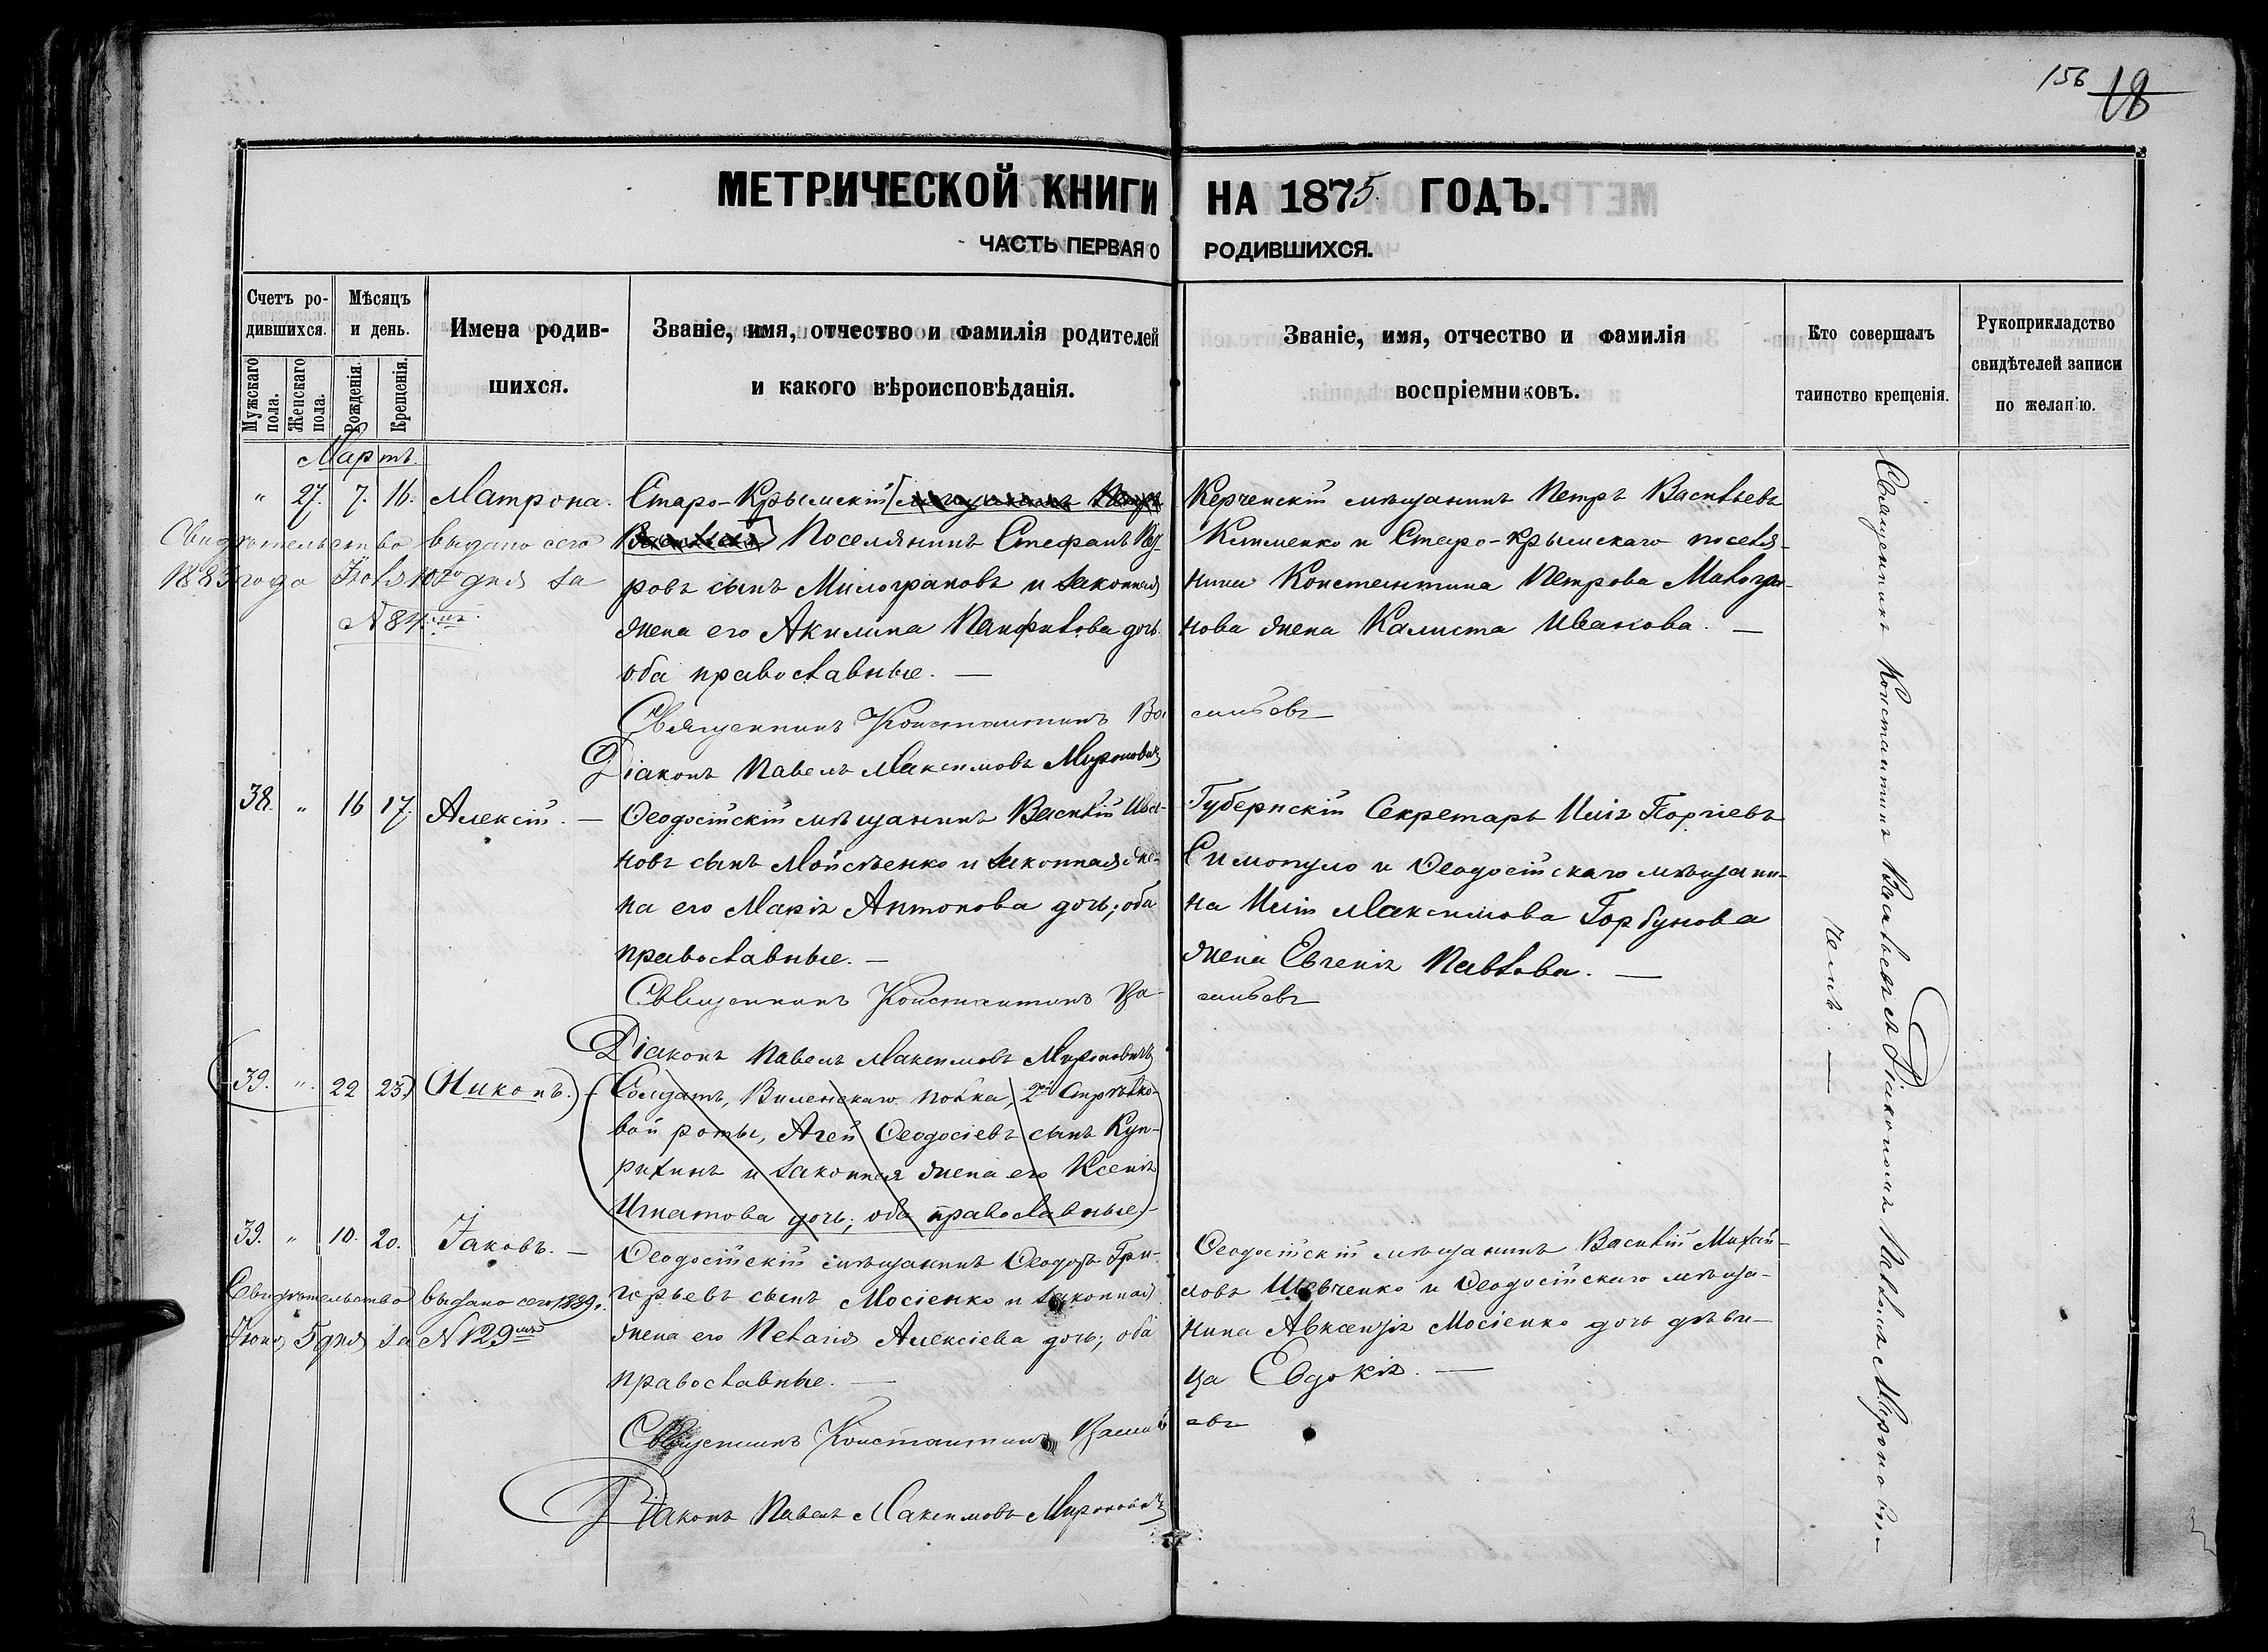 156 18
МЕТРИЧЕСКОЙ КНИГИ НА 1875 ГОДЪ.
ЧАСТЬ ПЕРВАЯ О РОДИВШИХСЯ.
Счетъ ро-
дившихся.
Мужскаго пола.
Женскаго пола.
Мѣсяцъ
и день.
Рожденія.
Крещенія.
Имена родив-
шихся.
Званіе, имя, отчество и фамилія родителей
и какого вѣроисповѣданія.
Званіе, имя, отчество и фамилія
воспріемниковъ.
Кто совершалъ
таинство крещенія.
Рукоприкладство
свидѣтелей записи
по желанію.
Мартъ.
" 27. 7. 16. Матрона.
Свидѣтельство выдано сего
1883 года Іюля 10го дня за
№ 84мъ.
Старо-Крымскій
Поселянинъ Стефанъ Пет-
ровъ сынъ Милограновъ и законная
жена его Акилина Панфилова дочь
оба православные. —
Священникъ Константинъ Ва
сильевъ
Діаконъ Павелъ Максимовъ Мироновичъ
Керченскій мѣщанинъ Петръ Васильевъ
и Старо-Крымскаго поселя-
нина Константина Петрова Милогра-
нова жена Калиста Иванова. —
38. " 16 17. Алексій. —
Ѳеодосійскій мѣщанинъ Василій Ива-
новъ сынъ Мойсѣенко и законная же-
на его Марія Антонова дочь; оба
православные. —
Священникъ Константинъ Ва-
сильевъ
Діаконъ Павелъ Максимовъ Мироновичъ
Губернскій Секретарь Илія Георгіевъ
Симопуло и Ѳеодосійскаго мѣщани-
на Иліи Максимова Горбунова
жена Евгенія Павлова. —
(39. " 22 23.) (Никонъ.) —
(Солдатъ, Виленскаго полка, 2й Стрѣлко-
вой роты, Агей Ѳеодосіевъ сынъ Куп-
рихинъ и законная жена его Ксенія
Игнатова дочь; оба православные) -
39. " 10. 20. Іаковъ. —
Свидѣтельство выдано сего 1889 г.
Іюня 5 дня за № 129мъ
Ѳеодосійскій мѣщанинъ Ѳеодоръ Гри-
горьевъ сынъ Мосіенко и законная
жена его Пелагія Алексіева дочь; оба
православные. —
Священникъ Константинъ Василь
евъ
Діаконъ Павелъ Максимовъ Мироновичъ
Ѳеодосійскій мѣщанинъ Василій Михай-
ловъ Шевченко и Ѳеодосійскаго мѣща-
нина Авксентія Мосіенко дочь дѣви-
ца Евдокія. —
Священникъ Константинъ Васильевъ съ Діакономъ Павломъ Миронови-
чемъ. —